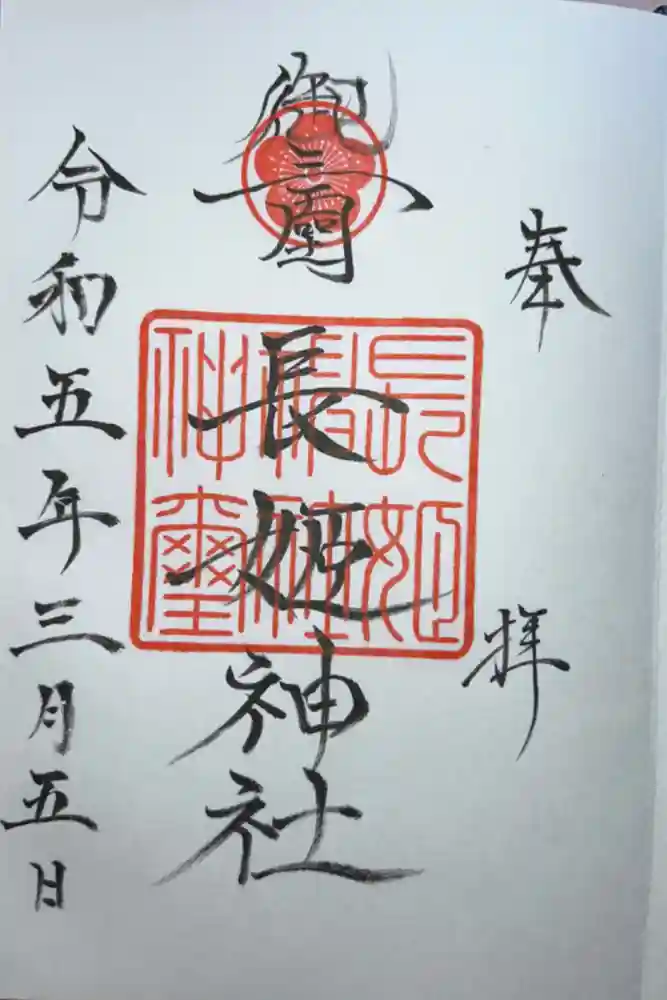 奉拝
御三
長姫神社
長姫
神社
神璽
令和五年三月五日